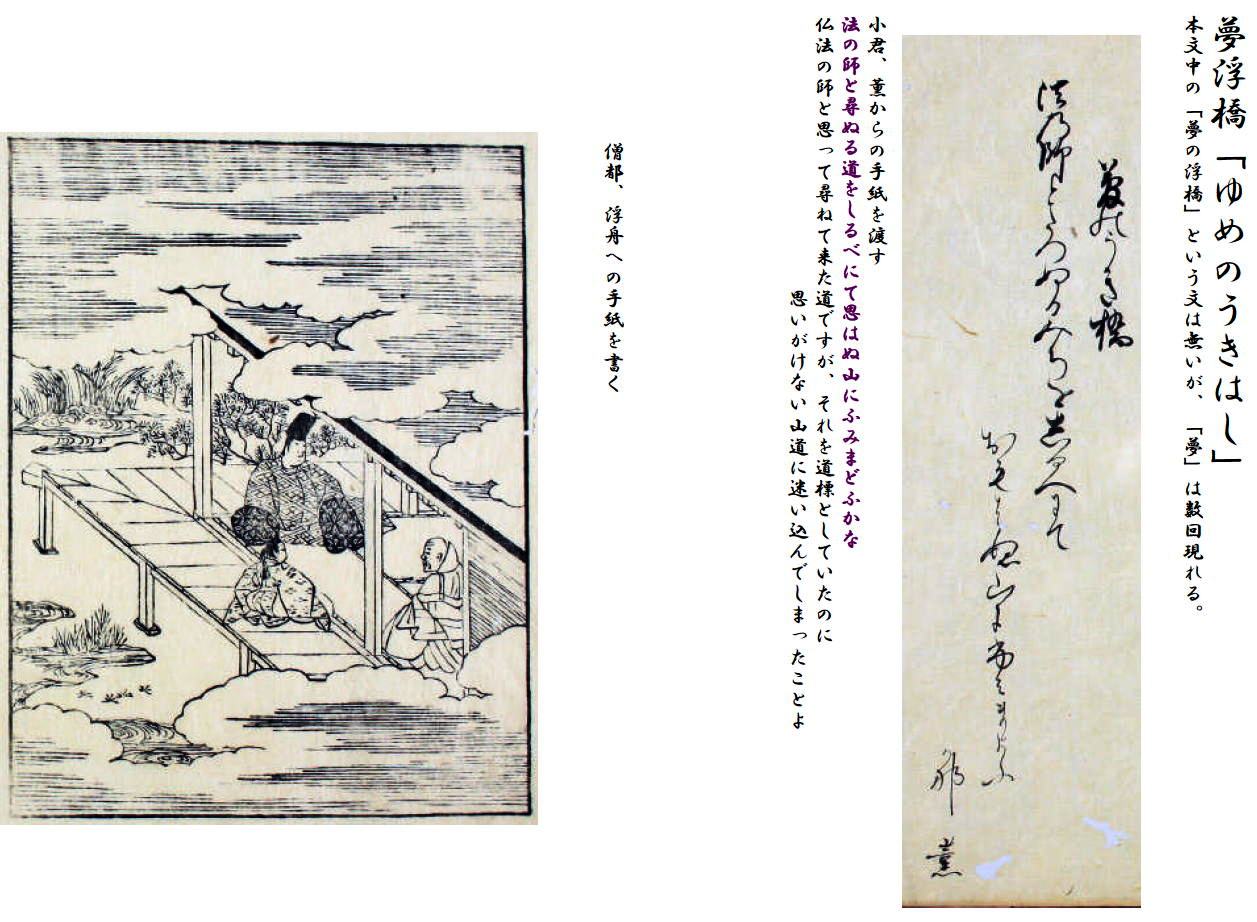 夢浮橋「ゆめのうきはし」
本文中の「夢の浮橋」という文は無いが、「夢」は数回現れる。
夢のうき橋
法の師とたつぬるみちをしるへにて
おもはぬ山にふみまとふ
かな 薫
小君、薫からの手紙を渡す
法の師と尋ぬる道をしるべにて思はぬ山にふみまどふかな
仏法の師と思って尋ねて来た道ですが、それを道標としていたのに
思いがけない山道に迷い込んでしまったことよ
僧都、浮舟への手紙を書く